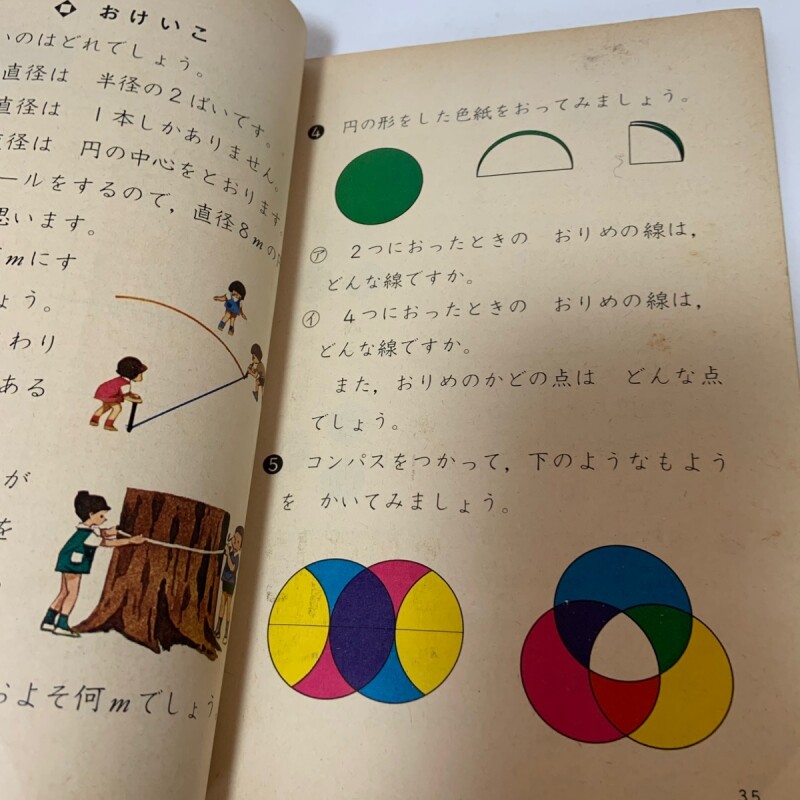 おけいこ
いのはどれでしょう。
直径は 半径の2ばいです。
直径は 1本しかありません。
径は 円の中心をとおります。
ールをするので，直径8mの
思います。
mにす
ょう。
わり
ある
が
を
およそ何mでしょう。
❹ 円の形をした色紙をおってみましょう。
㋐ 2つにおったときの おりめの線は，
どんな線ですか。
㋑ 4つにおったときの おりめの線は，
どんな線ですか。
また，おりめのかどの点は どんな点
でしょう。
❺ コンパスをつかって，下のようなもよう
を かいてみましょう。
35